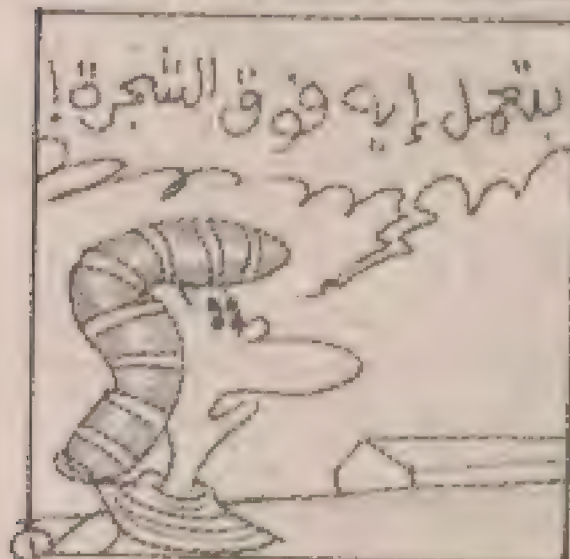 بتعمل إيه فوق الشجرة!